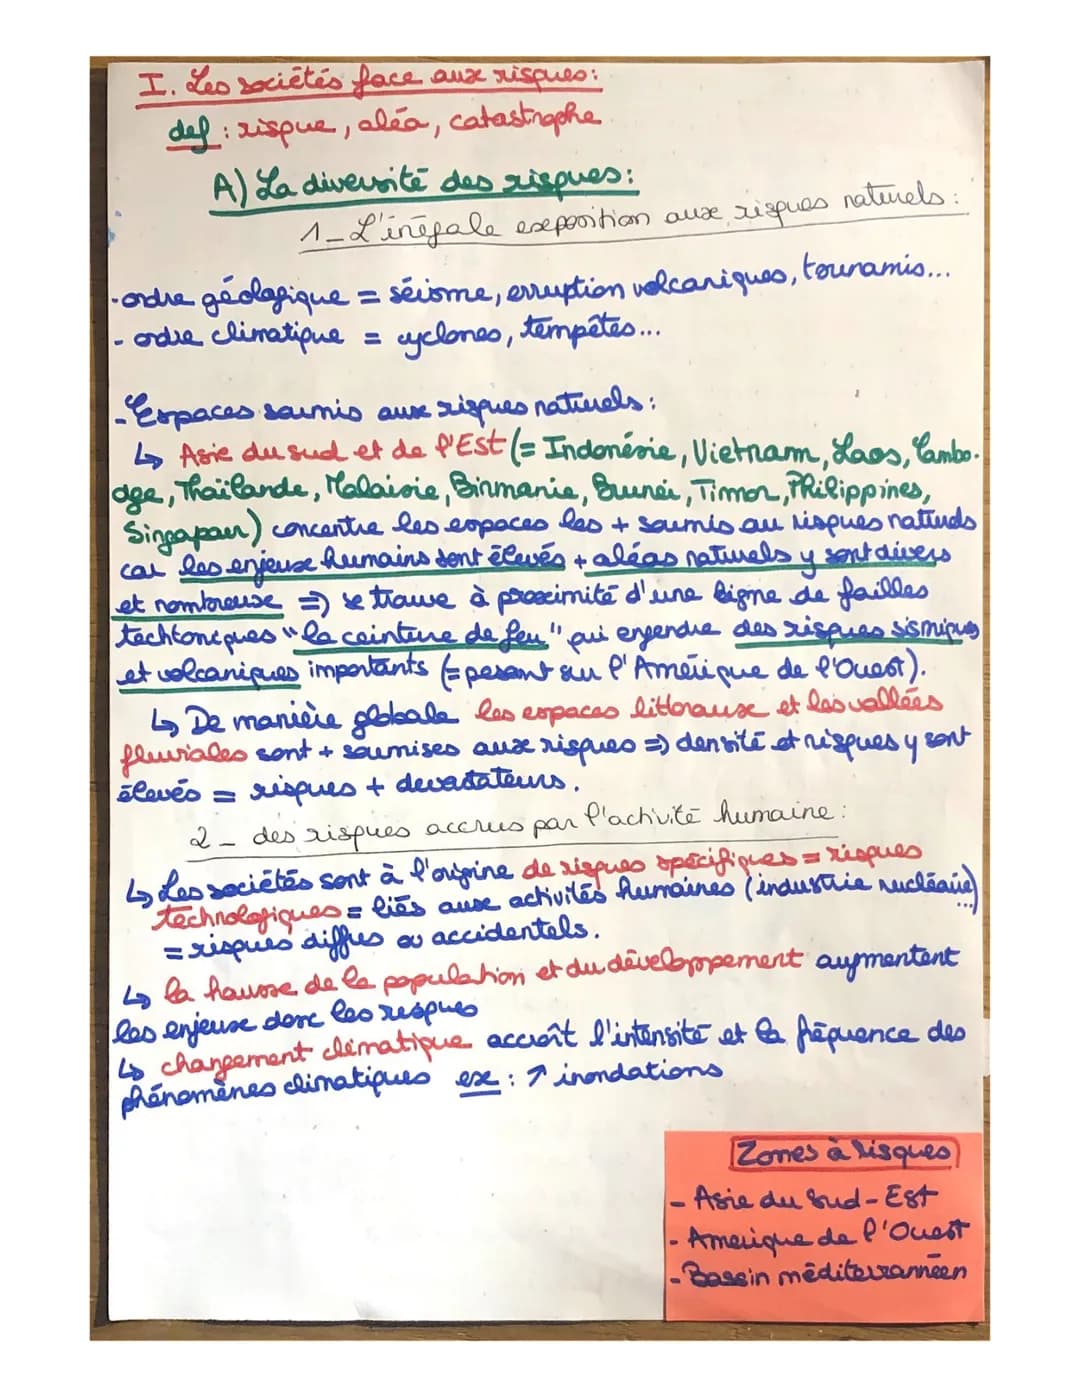 I. Les sociétés face aux risques:
def : risque, aléa, catastrophe
A) La diversité des risques:
1_ L'inégale exposition aux risques naturels :
- ordre géologique = séisme, erruption volcaniques, tounamis...
- ordre climatique = cyclones, tempêtes...
- Espaces soumis aux risques naturels :
↳ Asie du sud et de l'Est (= Indonésie, Vietnam, Laos, Cambo-
dge, Thaïlande, Malaisie, Birmanie, Brunei, Timor, Philippines,
Singapour) concentre les espaces les + soumis au risques naturels
car les enjeux humains sont élevés + aléas naturels y sont divers
et nombreux => se trouve à proximité d'une ligne de failles
techtoniques "la ceinture de feu" qui engendre des risques sismiques
et volcaniques importants (= pesant sur l'Amérique de l'Ouest).
↳ De manière globale les espaces littoraux et les vallées
fluviales sont + soumises aux risques => densité et risques y sont
élevés = risques + devastateurs.
2 _ des risques accrus par l'activité humaine :
↳ Les sociétés sont à l'origine de risques spécifiques = risques
technologiques = liés aux activités humaines (industrie nucléaire...)
= risques diffus ou accidentels.
↳ la hausse de la population et du développement augmentent
les enjeux donc les risques
↳ changement climatique accroît l'intensité et la fréquence des
phénomènes climatiques ex : ↗ inondations
Zones à risques
- Asie du Sud-Est
- Amerique de l'Ouest
- Bassin méditerrannéen